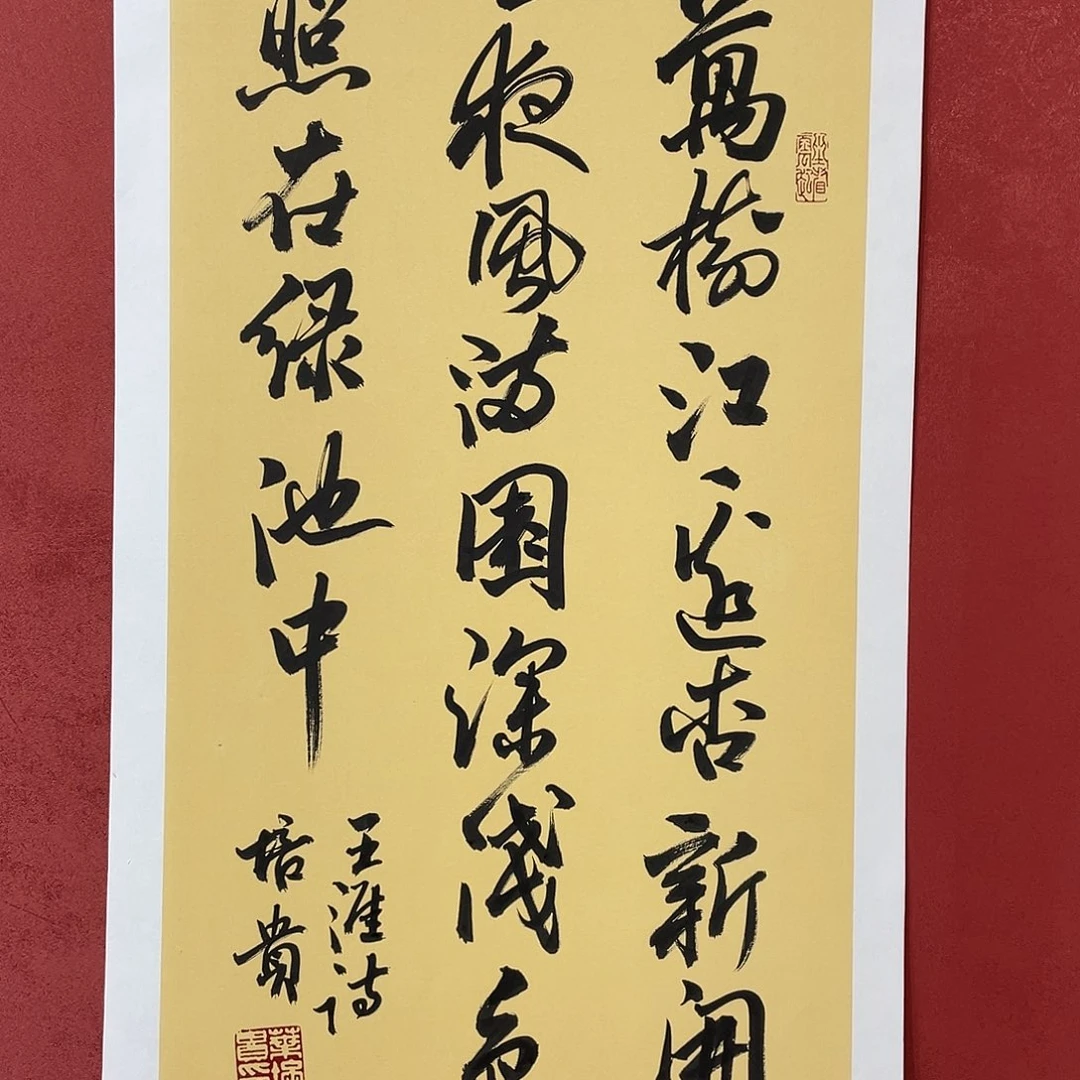 萬樹江邊杏新開
夜風满園深浅色
照在緑池中
王涯詩
培貴